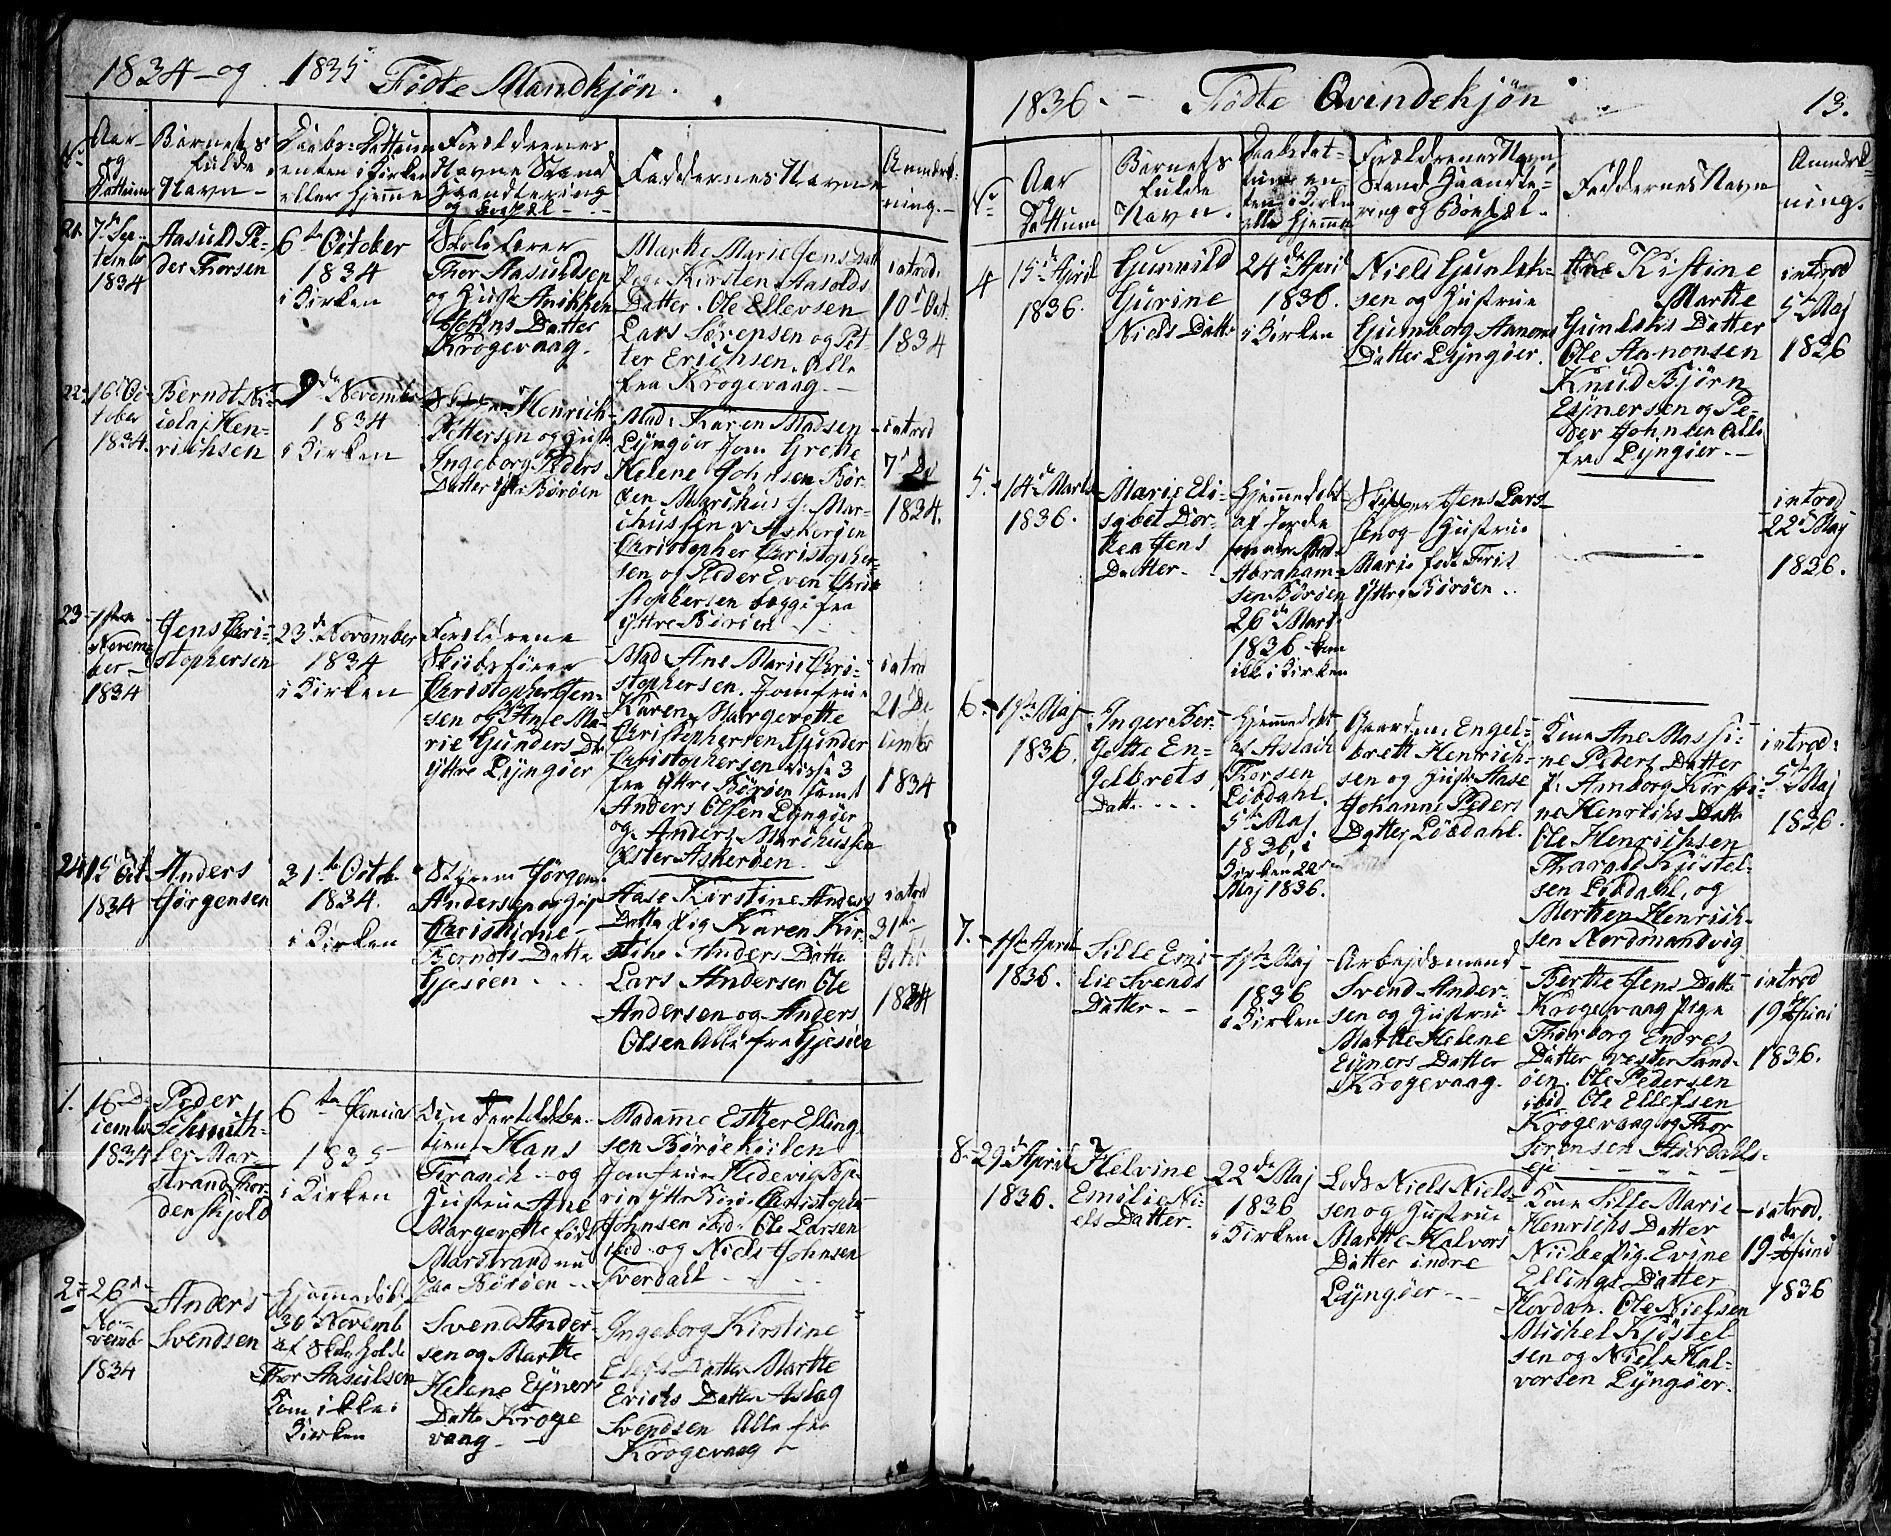 1834 og 1835 Födte Mandkjön.
No
Aar
og
Dattum
Barnets
fulde
Navn
Daabs-Dattum
enten i Kirken
eller hjemme
Forældrenes
Navne Stand
Haandtering
og Bopæl
Faddernes Navne
Anmærk-
ning.
21.
7de Sep-
tember
1834
Aasuld Pe-
der Thorsen
6te October
1834
i Kirken
Skolelærer
Thor Aasuldsen
og Hustr Anikken
Jens Datter
Krogevaag.
Marthe Marie Jens Datt
Pige Kirsten Aasolds
Datter. Ole Ellevsen
Lars Sörensen og Pet
ter Erichsen. Alle
fra Krogevaag.
introd.
10de Oct.
1834
22.
16 Oc
tober
1834.
Berndt Ni-
colaj Hen-
richsen
9de Novemb
1834
i Kirken
Henrich
Pettersen og Hustr
Ingeborg Peders
Datter Ytre Boröen
Mad: Karen Madsen
Lyngöer Jom Grethe
Helene Johnsen Bor-
öen Marchus J: Mar-
chussen v Askeröen
Christopher Christopher-
sen og Peder Even Chri
stophersen begge fra
Ytre Boröen
introd
7de
1834.
23
1ste
Novem-
ber
1834
Jens Chri-
stophersen
23de November
1834
i Kirken
Forældrene
Skibsförer
Christopher Jen-
sen og Ane Ma-
rie Gunders Dr
Ytre Lyngöer
Mad Ane Marie Chri-
stophersen. Jomfrue
Karen Margrethe
Christophersen Gunder
Christophersen disse 3
fra Ytre Boröen samt
Anders Olsen Lyngöer
og Anders Marchussen
Öster Askeröen.
introd
21de De
cember
1834
24
15 Oct
1834
Anders
Jörgensen
31te Octob
1834.
i Kirken
Jörgen
Andersen og Hus
Christiane
Berndts Datte
Gjesöen
Aase Kirstine Anders
Datte Pig Karen Kir-
stine Anders Datte
Lars Andersen Ole
Andersen og Anders
Olsen Alle fra Gjesöen
introd
31te
Octob
1834
1.
16 De
cemb
1834
Peder
Schmith-
ler Mar-
strand Thor-
denskjold
6te Januar
1835
i Kirken
Hans
Franck og
Hustrue Ane
Margrethe föd
Marstrand nu
fra Boröen
Madame Esther Elling-
sen Boröekilen
Jomfrue Hedevig
Ytre Boröe Christophe
Johnsen ibid. Ole Larsen
ibid. og Niels Johnsen
Sverdalt
2
26de
No-
vemb
1834
Anders
Svendsen
Hjemmedöbt
30 Novemb
af Skoleholde
Thor Aasulsen
Kom ikke i
Kirken
Svend Ander-
sen og Marthe
Helene Eyners
Datte Kroge
vaag
Ingeborg Kirstine
Datter Marthe
Erichs Datter Aslag
Svendsen Alle fra
Krogevaag
1836. Födte Qvindekjön
13.
No
Aar
og
Dattum
Barnets
fulde
Navn.
Daabsdat-
tum en
ten i Kirke
elle hjemme
Forældrenes Navn,
Stand Haandte-
ring og Bopæl.
Faddernes Navn
Anmærk-
ning.
4
15de April
1836.
Gunvild
Gurine
Niels Datte
24de April
1836.
i Kirken
Niels Gunlek-
sen og Hustrue
Gumborg Annons
Datter Lyngöer.
Kistine
Marthe
Gunleks Datter
Ole Annonsen
Knud Björn
Eynersen og Pe-
der Johnsen Alle
fra Lyngöer.
introd
5te Maj
1836
5.
14de Marts
1836.
Marie Eli-
sabet Dor-
thea Jens
Datter
Hjemmedöbt
af Jorde
moder Mad
Abraham-
sen Boröen
26de Mart
1836 Kom
ikke i Kirken
Skipper Jens Lars-
sen og Hustrue
Marie föd Friis
Ytre Boröen.
introd
22de Maj
1836.
6.
1ste Maj
1836.
Inger Ber-
gette En-
gelbrets
Datte
Hjemmedöbt
af Aslach
Thorsen
Löbdahl.
5te Maj
1836, i
Kirken 22de
Maj 1836.
Gaardm. Engel-
brett Henrich-
sen og Hustr Aase
Johanne Peders
Datter Löbdahl.
Kone Ane Massi-
ne Peders Datter
P. Amborg Kirsti-
ne Henrichs Datte
Ole Henrichsen
Tharald Kjöstel-
sen Löbdahl, og
Morthen Henrich-
sen Nordmandvig
introd:
5te Maj
1836.
7.
1ste April
1836.
Sille Emi
lie Svends
Datter
1ste Maj
1836
i Kirken
Arbejdsmand
Svend Ander-
sen og Hustrue
Marthe Helene
Eyners Datter
Krogevaag.
Berthe Jens Datte
Krogevaag Pige
Thorborg Endres
Datter vester Sand-
öen. Ole Pedersen
ibid Ole Ellefsen
Krogevaag og Thor
Sörensen
introd
19de Juni
1836.
8.
29de April
1836.
Helvine
Emilie Ni-
els Datter.
22de Maj
1836
i Kirken
Lods Niels Niels-
sen og Hustrue
Marthe Halvors
Datter indre
Lyngöer
Kone Sille Marie
Henrichs Datter
Pig. Evine
Ellings Datter
Ole Nielsen
Michel Kjöstel
sen og Niels Hal-
vorsen Lyngöer.
introd.
19de Juni
1836